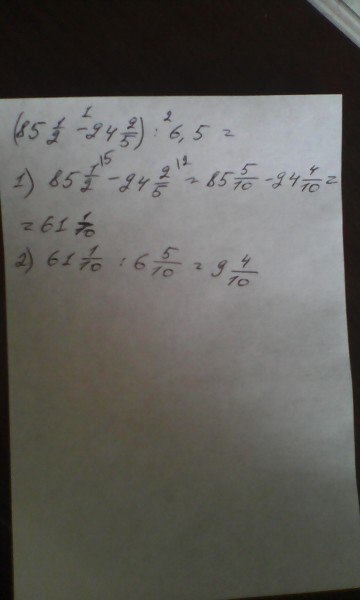 (85 1/2 -¹ 24 2/5) :² 6,5 =
1) 85 1/2 ⁽⁵ - 24 2/5 ⁽² = 85 5/10 - 24 4/10 =
= 61 1/10
2) 61 1/10 : 6 5/10 = 9 4/10